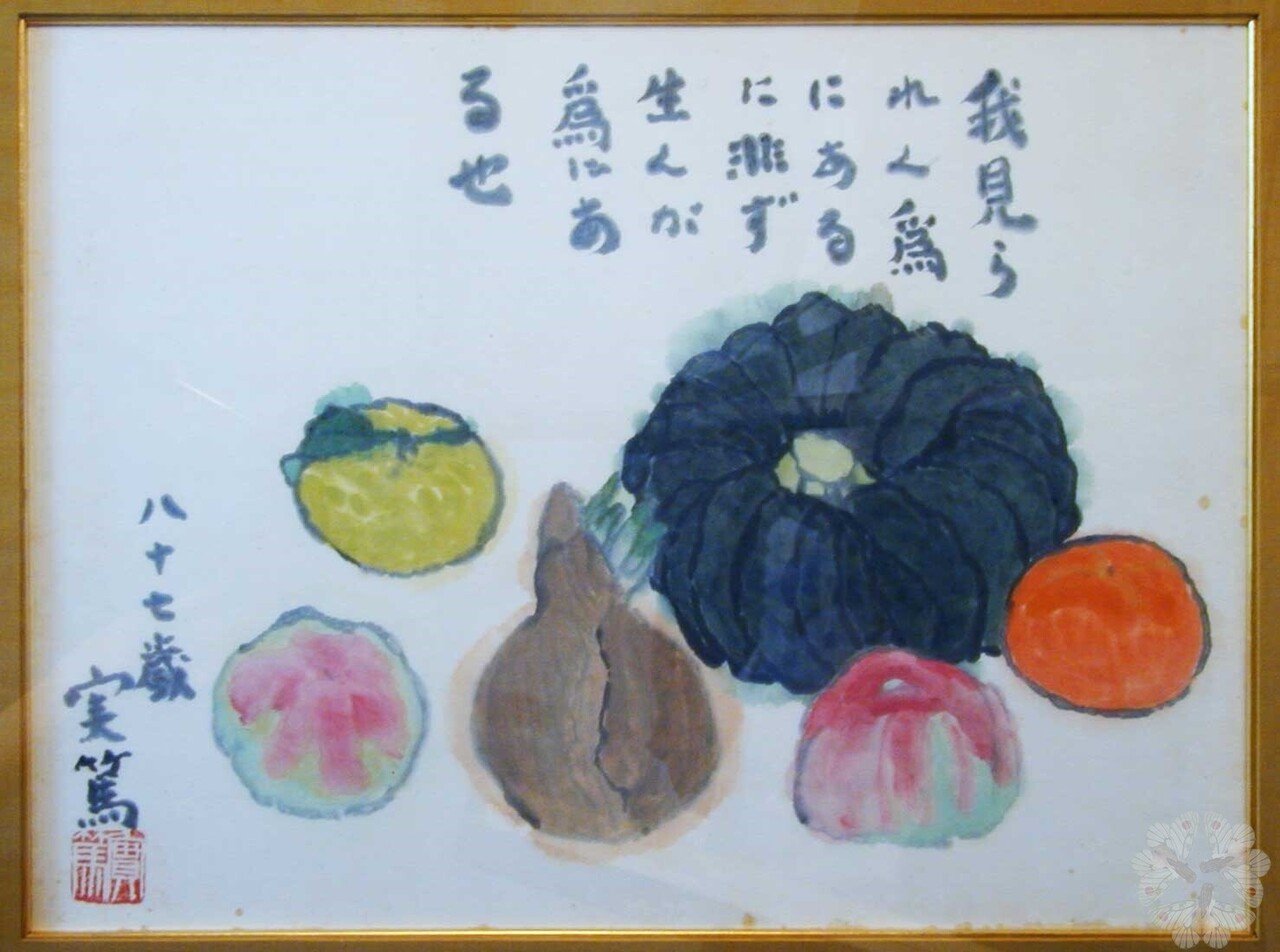 我見ら
れん為
にある
に非ず
生んが
為にあ
る也
八十七歳
実篤
實篤